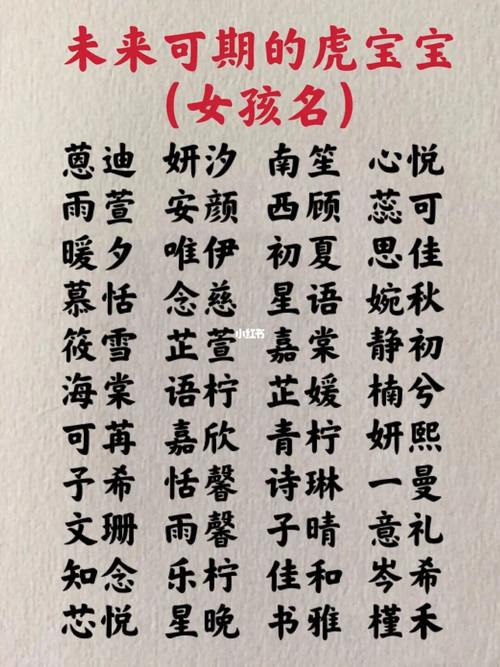 未来可期的虎宝宝
(女孩名)
蒽迪 妍汐 南笙 心悦
雨萱 安颜 西顾 蕊可
暖夕 唯伊 初夏 思佳
慕恬 念慈 星语 婉秋
筱雪 芷萱 嘉棠 静初
小红书
海棠 语柠 芷媛 楠兮
可苒 嘉欣 青柠 妍熙
子希 恬馨 诗琳 一曼
文珊 雨馨 子晴 意礼
知念 乐柠 佳和 岑希
芯悦 星晚 书雅 槿禾